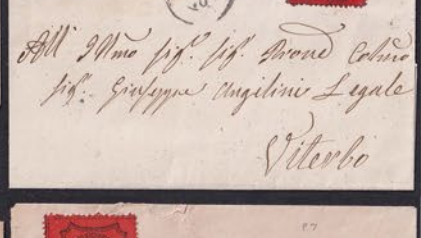 All' Illmo Sigr. Sigr. Prone Colmo
Sigr. Giuseppe Angilini Legale
Viterbo